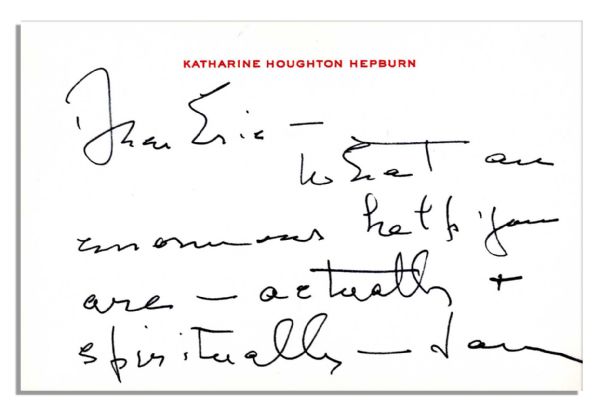 KATHARINE HOUGHTON HEPBURN
Dear Eric —
What an
enormous help you
are — actually +
spiritually — I am